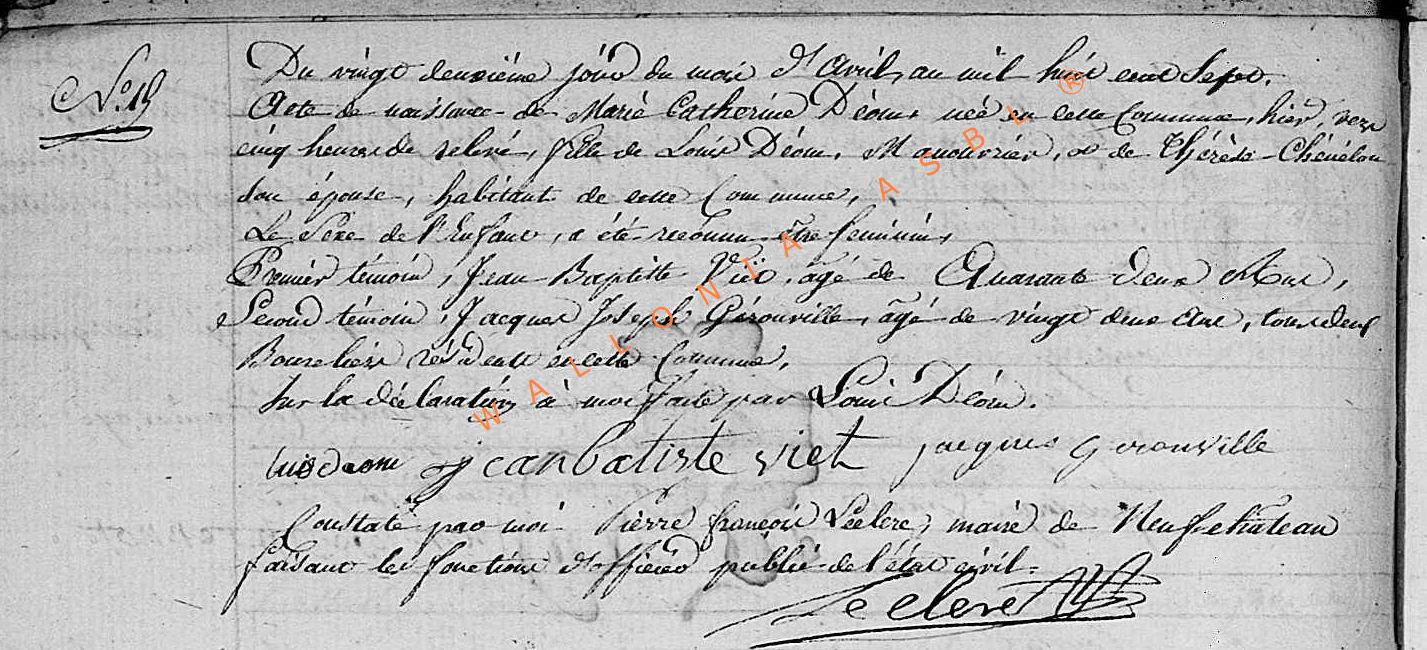 No. 19
Du vingt deuxième jour du mois d'avril, an mil huit cent sept.
Acte de naissance de Marie Catherine Déom, née en cette Commune, hier, vers
cinq heures de relevé, fille de Louis Déom, Manouvrier, & de Thérèse Chénélou
son épouse, habitant de cette Commune,
Le Sexe de l'Enfant, a été reconnu être feminin,
Premier témoin, Jean Baptiste Viet, agé de Quarante deux Ans,
Second témoin, Jacques Joseph Gérouville, agé de vingt deux ans, tous deux
Boureliers résidents en cette Commune,
Sur la déclaration à moi faite par Louis Déom.
luis deom jean batiste viet jacques gerouville
Constaté par moi Pierre françois Leclerc, maire de Neufchateau
faisant les fonctions d'officier public de l'état civil.
Leclerc
WALLONIA ASBL ®